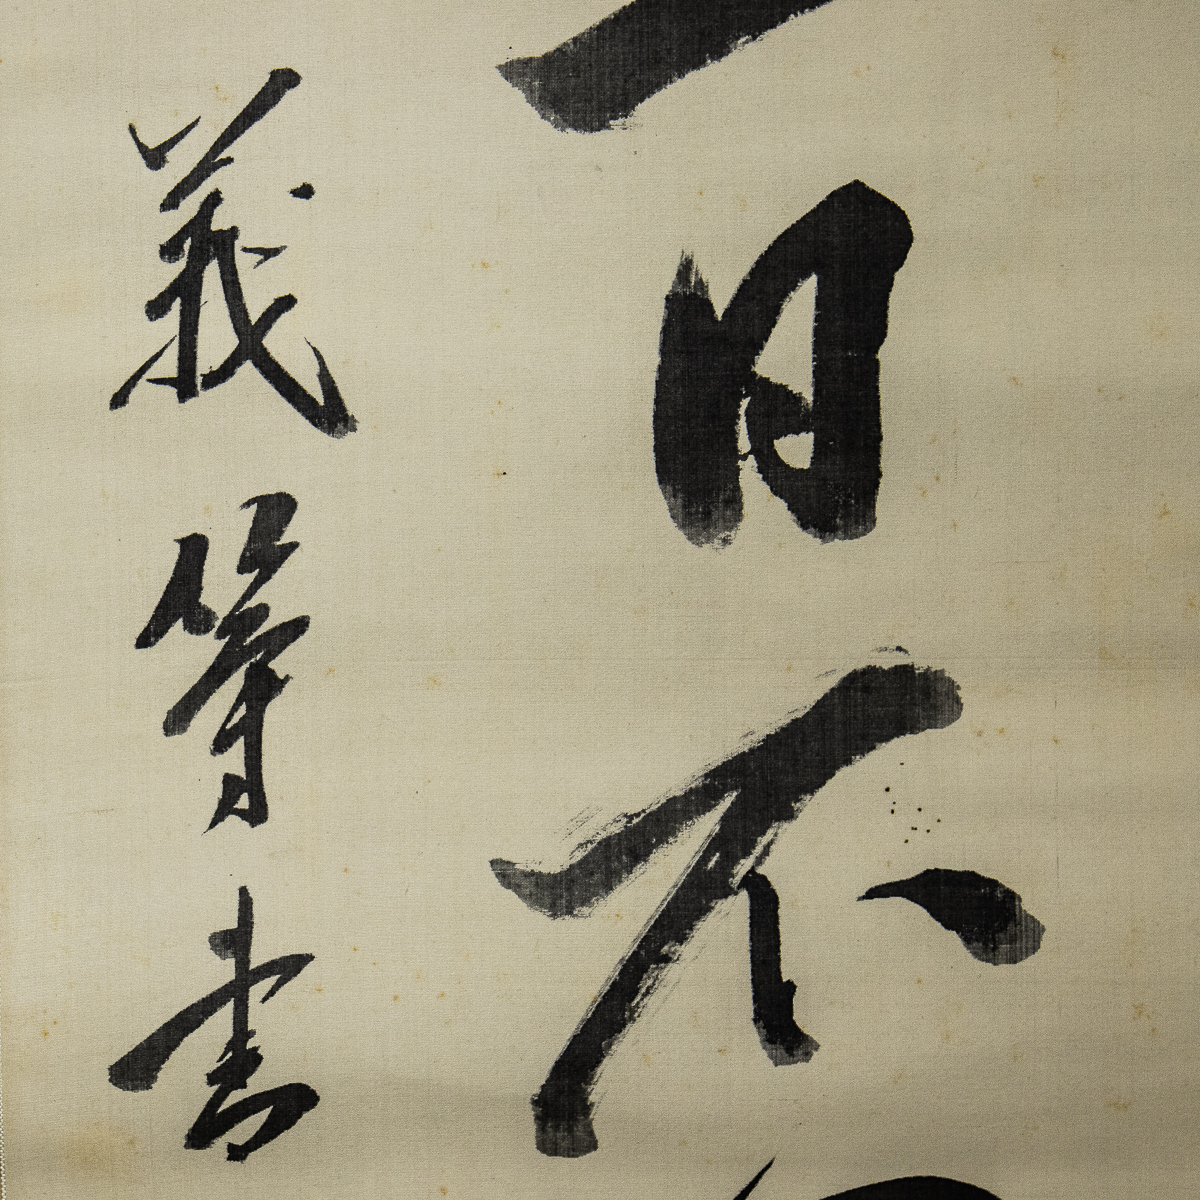 一日不
義等書